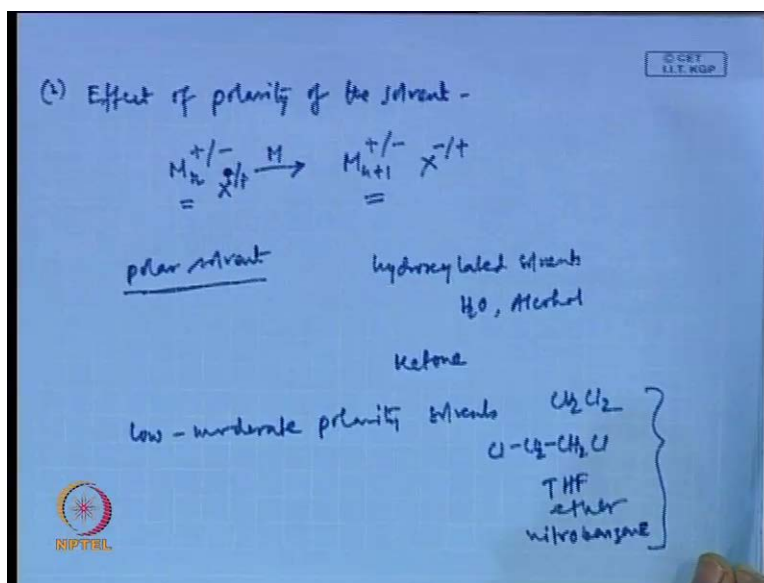 © CET
I.I.T. KGP
(2) Effect of polarity of the solvent -
Mn+/- X-/+ M → Mn+1+/- X-/+
polar solvent hydroxylated solvents
H2O, Alcohol
Ketone
low - moderate polarity solvents CH2Cl2
Cl-CH2-CH2Cl
THF
ether
nitrobenzene
NPTEL